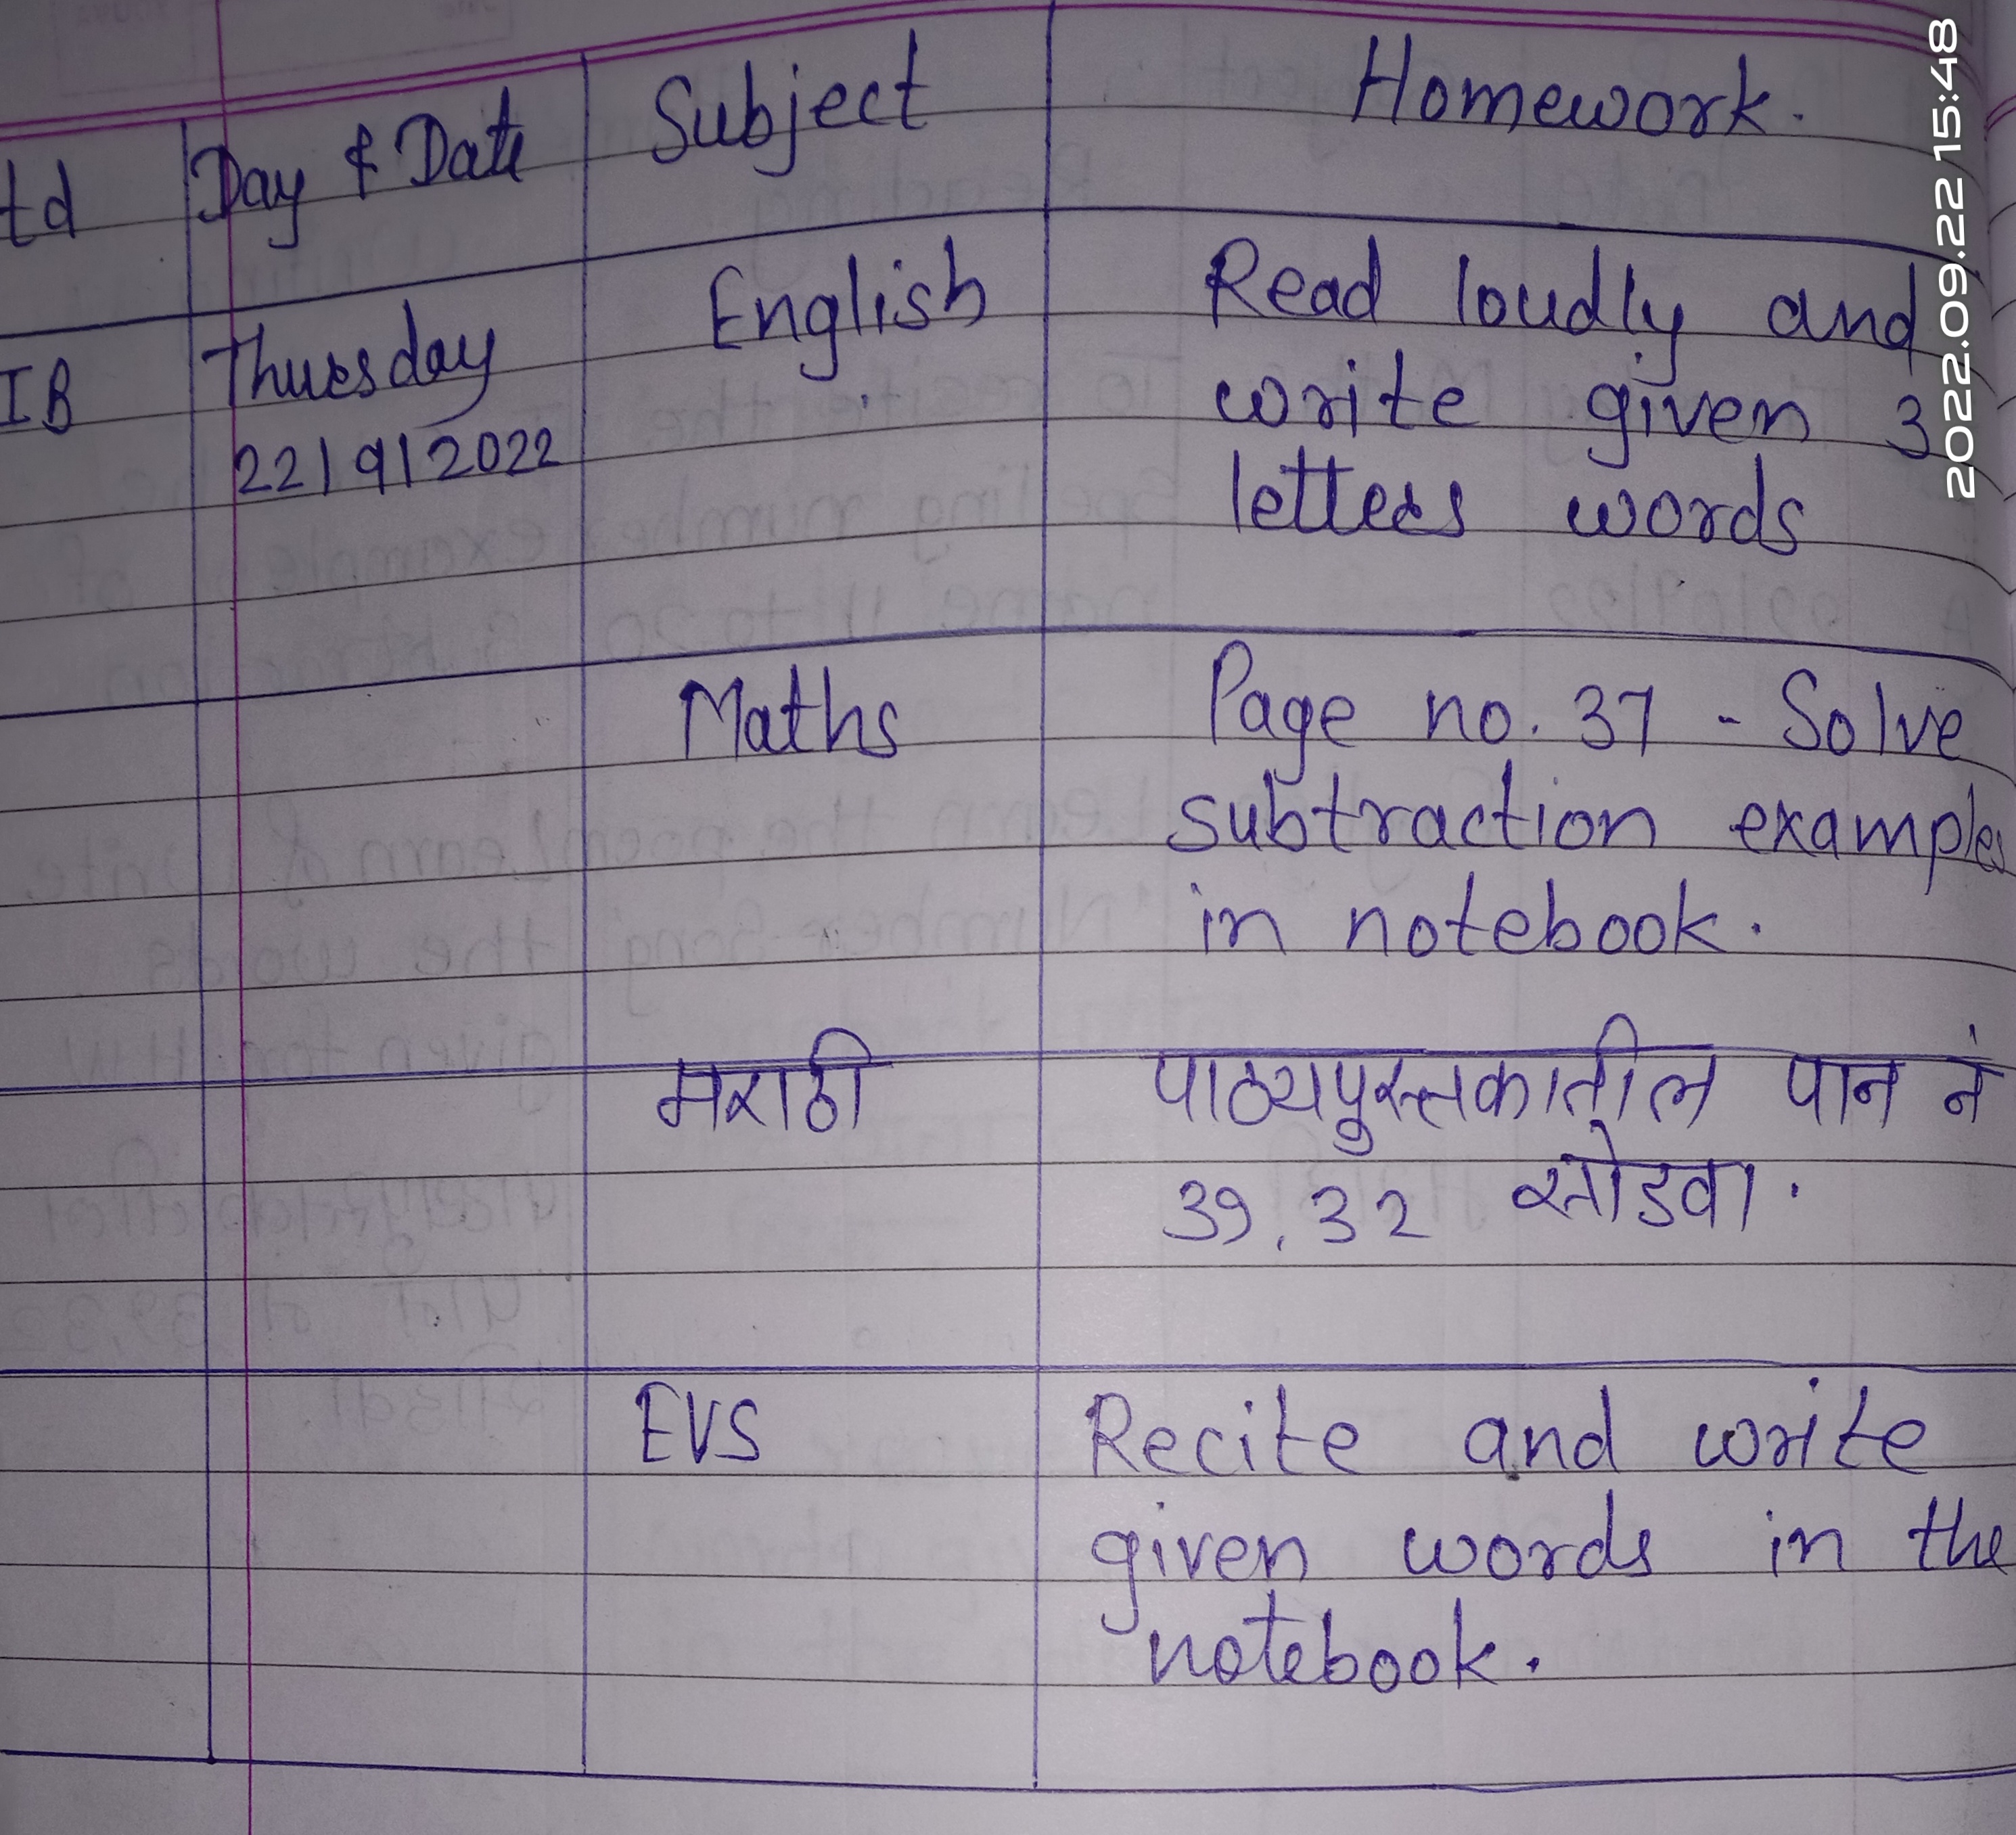 td Day & Date Subject Homework.
IB Thursday English Read loudly and
22/9/2022 write given 3
letters words
Maths Page no. 37 - Solve
subtraction examples
in notebook.
मराठी पाठ्यपुस्तकातील पान नं
३१, ३२ सोडवा.
EVS Recite and write
given words in the
notebook.
2022.09.22 15:48